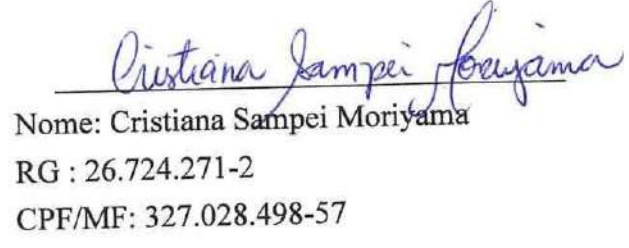 Cristiana Sampei Moriyama
Nome: Cristiana Sampei Moriyama
RG : 26.724.271-2
CPF/MF: 327.028.498-57